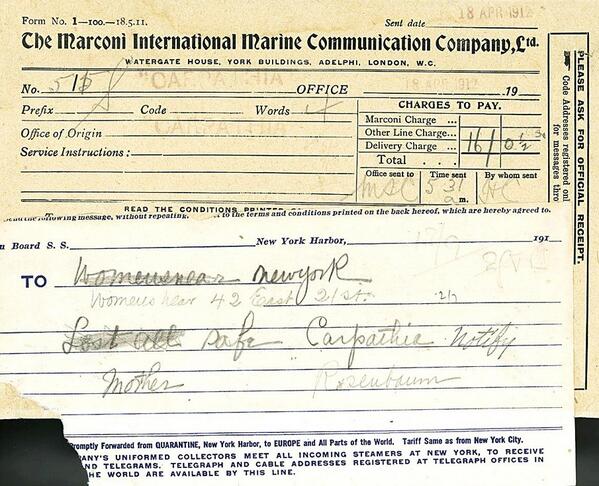 Form No. 1—100.—18.5.11.
Sent date
18 APR 1912
The Marconi International Marine Communication Company, Ltd.
WATERGATE HOUSE, YORK BUILDINGS, ADELPHI, LONDON, W.C.
No. OFFICE 19
18 APR 1912
Prefix Code Words
CHARGES TO PAY.
Marconi Charge ...
Office of Origin
Other Line Charge...
Delivery Charge ...
16 0½
Service Instructions :
Total
Office sent to Time sent By whom sent
MSC 5 31 a m. HC
READ THE CONDITIONS PRINTED
following message, without repeating, to the terms and conditions printed on the back hereof, which are hereby agreed to.
PLEASE ASK FOR OFFICIAL RECEIPT.
Code Addresses registered
for messages
n Board S. S. New York Harbor, 191
TO Womenswear newyork
Womens wear 42 East 21 st.
Lost all safe Carpathia Notify
Mother Rosenbaum
Promptly Forwarded from QUARANTINE, New York Harbor, to EUROPE and All Parts of the World. Tariff Same as from New York City.
ANY'S UNIFORMED COLLECTORS MEET ALL INCOMING STEAMERS AT NEW YORK, TO RECEIVE
ND TELEGRAMS. TELEGRAPH AND CABLE ADDRESSES REGISTERED AT TELEGRAPH OFFICES IN
THE WORLD ARE AVAILABLE BY THIS LINE.